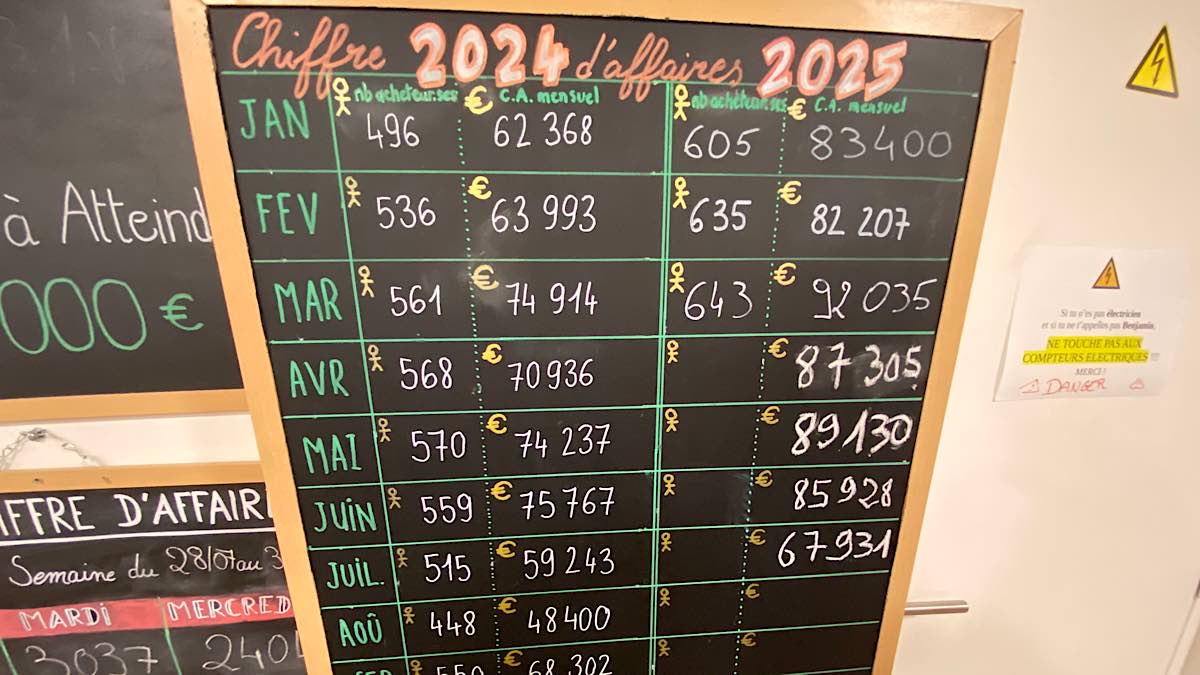 Chiffre 2024 d'affaires 2025
nb acheteur.ses € C.A. mensuel nb acheteur.ses € C.A. mensuel
JAN 496 62 368 605 83400
FEV 536 € 63 993 635 € 82 207
MAR 561 € 74 914 643 € 92 035
AVR 568 € 70 936 € 87 305
MAI 570 € 74 237 € 89 130
JUIN 559 € 75 767 € 85 928
JUIL. 515 € 59 243 € 67 931
AOÛ 448 € 48 400 €
550 € 68 302 €
à Atteind
000 €
IFFRE D'AFFAIR
Semaine du 28/07 au 3
MARDI MERCRED
3037 240
Si tu n'es pas électricien
et si tu ne t'appelles pas Benjamin,
NE TOUCHE PAS AUX
COMPTEURS ELECTRIQUES !!!
MERCI !
DANGER